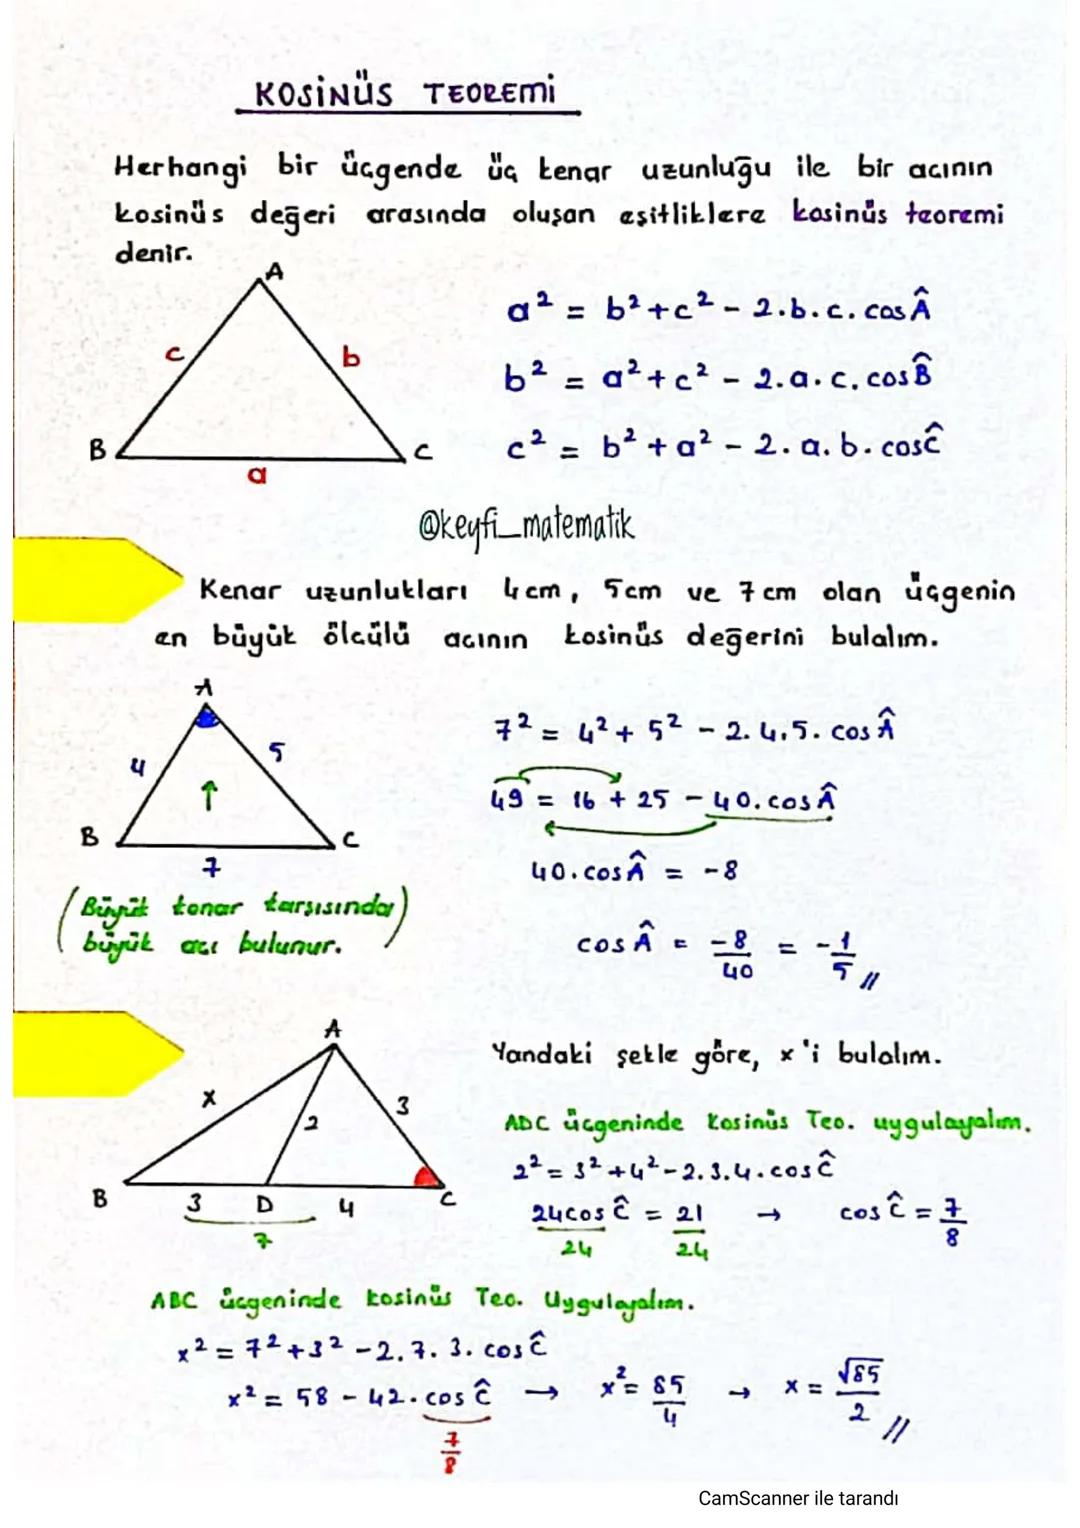 KOSİNÜS TEOREMİ
Herhangi bir üçgende üç kenar uzunluğu ile bir açının
kosinüs değeri arasında oluşan eşitliklere kosinüs teoremi
denir.
A
c
b
B
C
a
a² = b² + c² - 2.b.c.cosÂ
b² = a² + c² - 2.a.c.cosB̂
c² = b² + a² - 2.a.b.cosĈ
@keyfi_matematik
Kenar uzunlukları 4cm, 5cm ve 7cm olan üçgenin
en büyük ölçülü açının kosinüs değerini bulalım.
A
4
5
↑
B
C
7
(Büyük kenar karşısında
büyük açı bulunur.)
7² = 4² + 5² - 2.4.5.cosÂ
49 = 16 + 25 - 40.cosÂ
40.cosÂ = -8
cosÂ = -8/40 = -1/5 //
A
x
2
3
B
3
D
4
C
7
Yandaki şekle göre, x'i bulalım.
ADC üçgeninde Kosinüs Teo. uygulayalım.
2² = 3² + 4² - 2.3.4.cosĈ
24cosĈ/24 = 21/24 → cosĈ = 7/8
ABC üçgeninde kosinüs Teo. Uygulayalım.
x² = 7² + 3² - 2.7.3.cosĈ
x² = 58 - 42.cosĈ → x² = 85/4 → x = √85/2 //
7/8
CamScanner ile tarandı